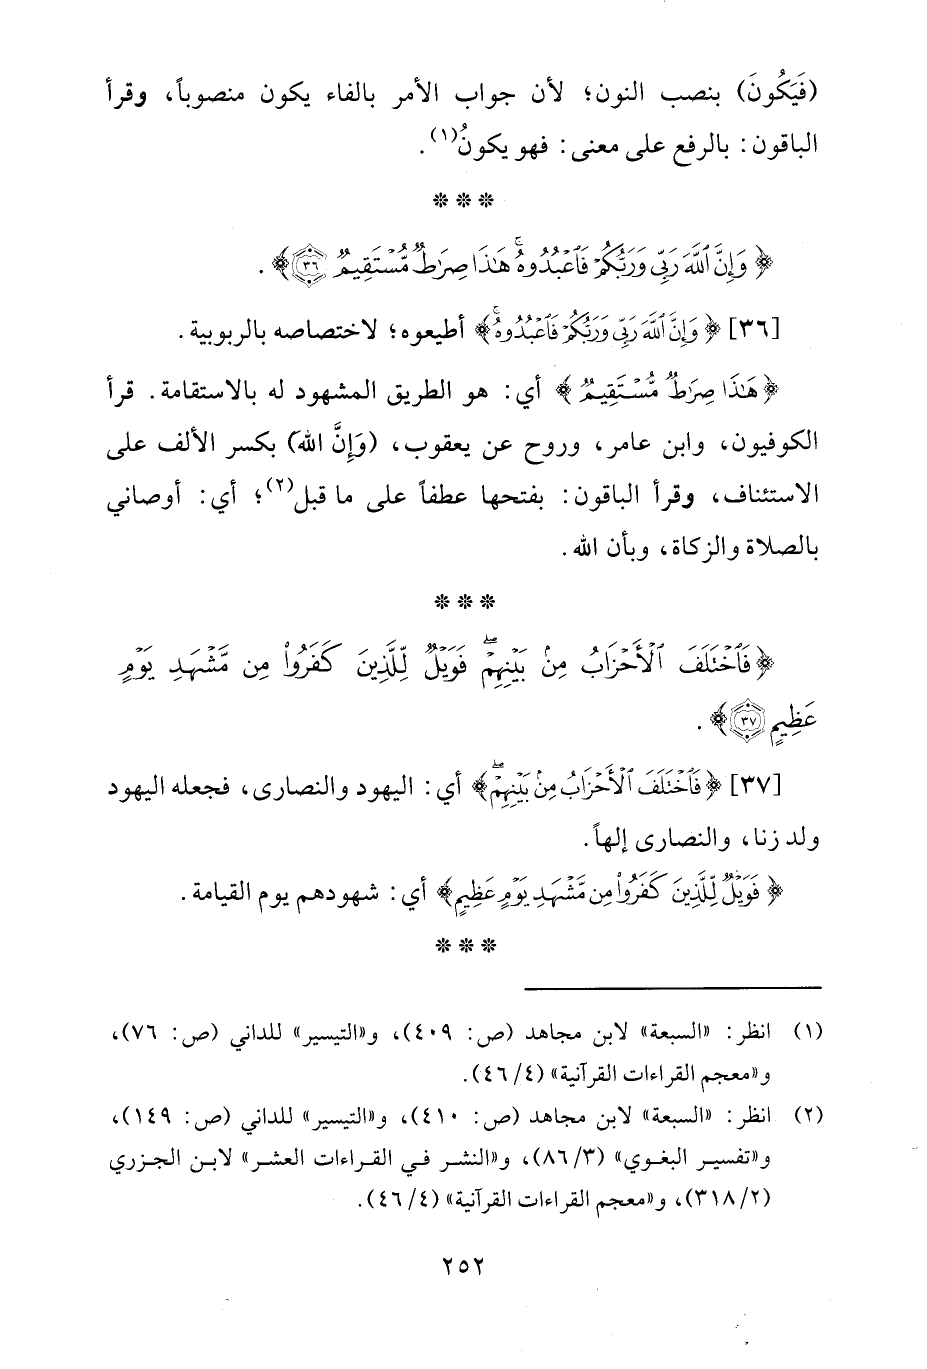 (فَيَكُونَ) بنصب النون؛ لأن جواب الأمر بالفاء يكون منصوباً، وقرأ
الباقون: بالرفع على معنى: فهو يكونُ(١).
* * *
﴿وَإِنَّ ٱللَّهَ رَبِّى وَرَبُّكُمْ فَٱعْبُدُوهُ ۚ هَٰذَا صِرَٰطٌ مُّسْتَقِيمٌ ٣٦﴾.
[٣٦] ﴿وَإِنَّ ٱللَّهَ رَبِّى وَرَبُّكُمْ فَٱعْبُدُوهُ ۚ﴾ أطيعوه؛ لاختصاصه بالربوبية.
﴿هَٰذَا صِرَٰطٌ مُّسْتَقِيمٌ﴾ أي: هو الطريق المشهود له بالاستقامة. قرأ
الكوفيون، وابن عامر، وروح عن يعقوب، (وَإِنَّ اللهَ) بكسر الألف على
الاستئناف، وقرأ الباقون: بفتحها عطفاً على ما قبل(٢)؛ أي: أوصاني
بالصلاة والزكاة، وبأن الله.
* * *
﴿فَٱخْتَلَفَ ٱلْأَحْزَابُ مِنۢ بَيْنِهِمْ ۖ فَوَيْلٌ لِّلَّذِينَ كَفَرُوا۟ مِن مَّشْهَدِ يَوْمٍ
عَظِيمٍ ٣٧﴾.
[٣٧] ﴿فَٱخْتَلَفَ ٱلْأَحْزَابُ مِنۢ بَيْنِهِمْ ۖ﴾ أي: اليهود والنصارى، فجعله اليهود
ولد زنا، والنصارى إلهاً.
﴿فَوَيْلٌ لِّلَّذِينَ كَفَرُوا۟ مِن مَّشْهَدِ يَوْمٍ عَظِيمٍ﴾ أي: شهودهم يوم القيامة.
* * *
(١) انظر: «السبعة» لابن مجاهد (ص: ٤٠٩)، و«التيسير» للداني (ص: ٧٦)،
و«معجم القراءات القرآنية» (٤/ ٤٦).
(٢) انظر: «السبعة» لابن مجاهد (ص: ٤١٠)، و«التيسير» للداني (ص: ١٤٩)،
و«تفسير البغوي» (٣/ ٨٦)، و«النشر في القراءات العشر» لابن الجزري
(٢/ ٣١٨)، و«معجم القراءات القرآنية» (٤/ ٤٦).
٢٥٢